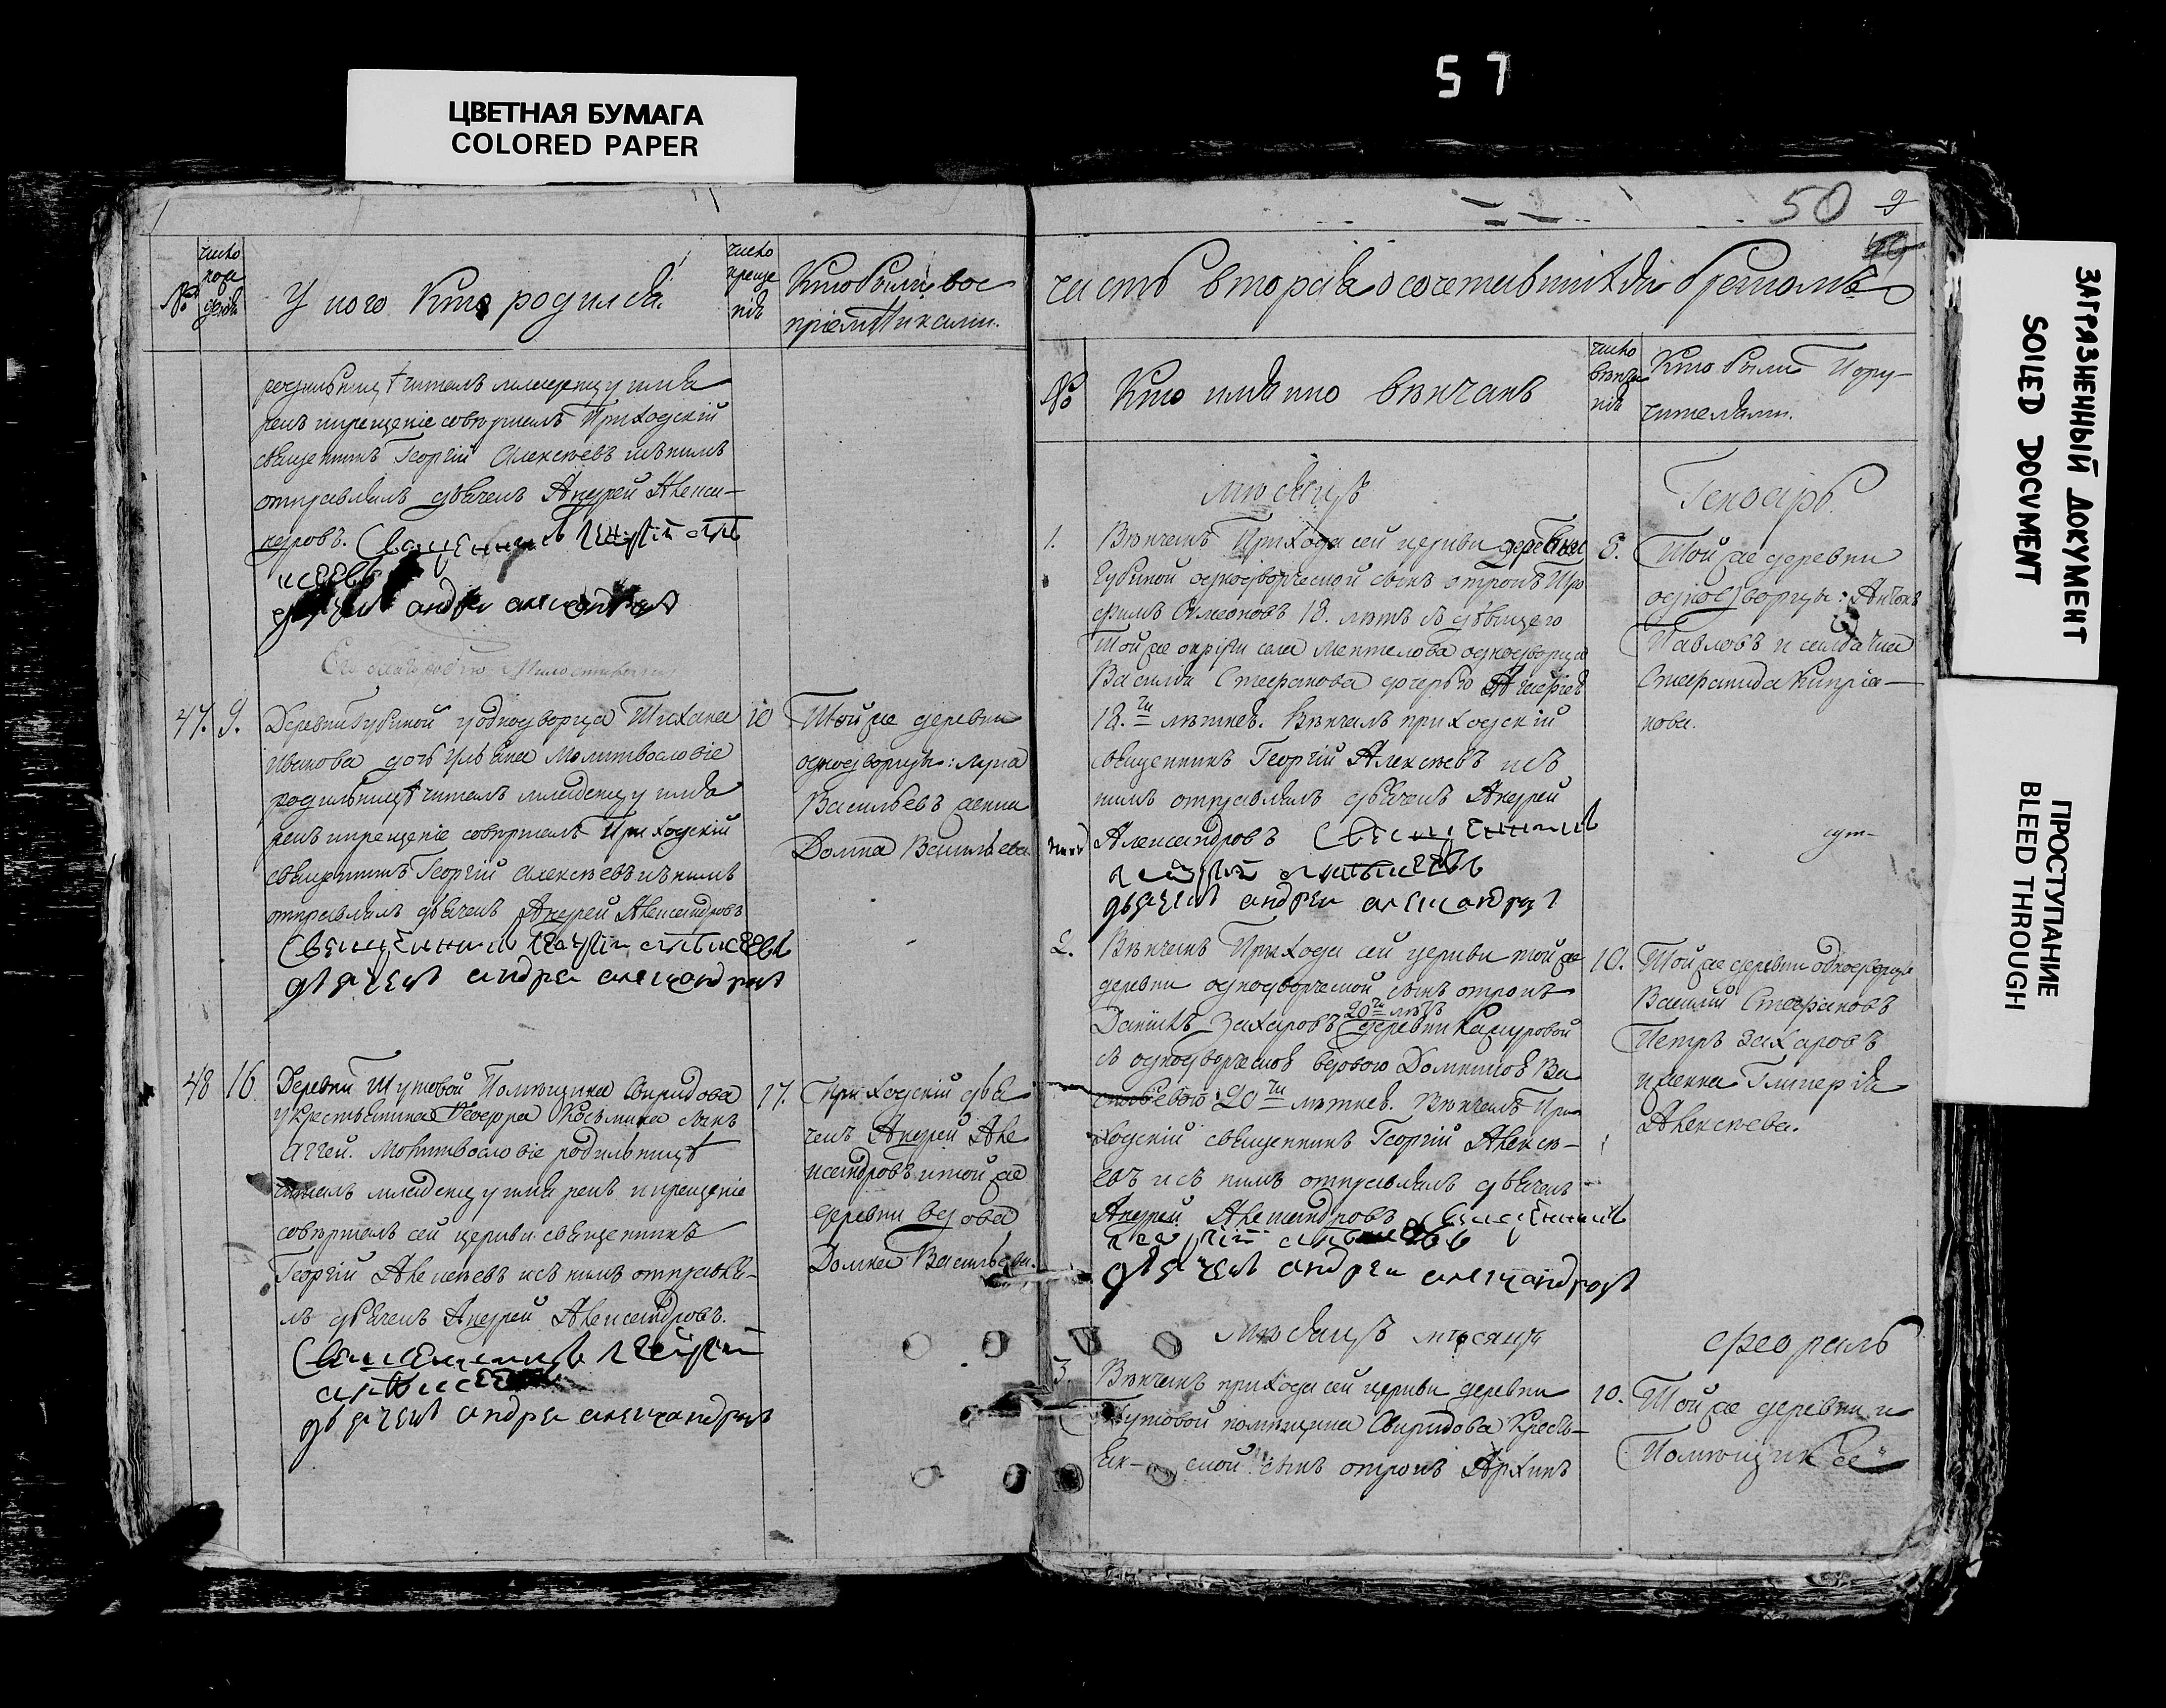 57
ЦВЕТНАЯ БУМАГА
COLORED PAPER
ЗАГРЯЗНЕННЫЙ ДОКУМЕНТ
SOILED DOCUMENT
ПРОСТУПАНИЕ
BLEED THROUGH
№
число
рож
денія
У кого кто родился
число
креще
нія
Кто были вос
пріемниками.
родильницѣ читалъ младенцу имя
рекъ и крещеніе совершалъ Приходскій
священникъ Георгій Алексѣевъ
отправлялъ дьячекъ Андрей Алекса-
ндровъ. Священникъ Георгій
дьячекъ андреи александровъ
47.
9.
Деревни Губиной у однодворца Тихана
Иванова дочь Ульяна Молитвословіе
родильницѣ читалъ младенцу имя
рекъ и крещеніе совершалъ Приходскій
священникъ Георгій Алексѣевъ и съ нимъ
отправлялъ дьячекъ Андрей Александровъ
Священникъ Георгій Алексѣевъ
дьячекъ андреи александровъ
10
Той же деревни
однодворцы: Лука
Васильевъ жена
Домна Васильева.
48
16.
Деревни Шутовой Помѣщика Свиридова
у крестьянина Козьмина сынъ
Аггей. Молитвословіе родильницѣ
читалъ младенцу имя рекъ и крещеніе
совершалъ сей церкви священникъ
Георгій Алексѣевъ и съ нимъ отправля-
лъ дьячекъ Андрей Александровъ.
Священникъ Георгій
алексѣевъ
дьячекъ андреи александровъ
17.
Приходскій дья
чекъ Андрей Але
ксандровъ и той же
деревни вдова
Домна Васильева.
50
9
49
часть вторая о сочетавшихся бракомъ
№
Кто имянно вѣнчанъ
число
вѣнча
нія
Кто были Пору-
чителями.
мѣсяцъ
Генварь.
1.
Вѣнчанъ Прихода сей церкви деревни
Губиной однодворческой сынъ отрокъ Тро
фимъ Симеоновъ 18. лѣтъ съ дѣвицею
Той же округи села однодворца
Василія Стефанова дочерью
18.ти лѣтнею. Вѣнчалъ приходскій
священникъ Георгій Алексѣевъ и съ
нимъ отправлялъ дьячекъ Андрей
Александровъ Священникъ
георгій алексѣевъ
дьячекъ андреи александровъ
8.
Той же деревни
однодворцы: Антонъ
Павловъ и солдатка
Стефанида Кипріа-
нова.
2.
Вѣнчанъ Прихода сей церкви той же
деревни однодворческой сынъ отрокъ
20ти лѣтъ
Даніилъ Захаровъ деревни
съ однодворческою вдовою Домникою Ва
сильевою 20ти лѣтнею. Вѣнчалъ При
ходскій священникъ Георгій Алексѣ-
евъ и съ нимъ отправлялъ дьячекъ
Андрей Александровъ Священникъ
георгій алексѣевъ
дьячекъ андреи александровъ
10.
Той же деревни однодворцы
Василій Стефановъ
Петръ Захаровъ
и жена Гликерія
Алексѣева.
мѣсяцъ мѣсяцъ
февраль
3.
Вѣнчанъ прихода сей церкви деревни
Шутовой помѣщика Свиридова Кресть-
янской сынъ отрокъ Архипъ
10.
Той же деревни и
Помѣщика